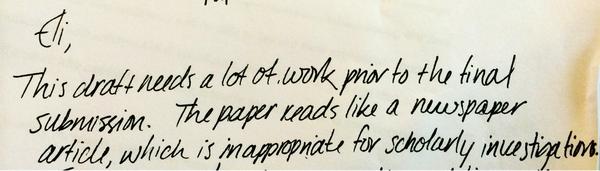 Eli,
This draft needs a lot of work prior to the final
submission. The paper reads like a newspaper
article, which is inappropriate for scholarly investigations.